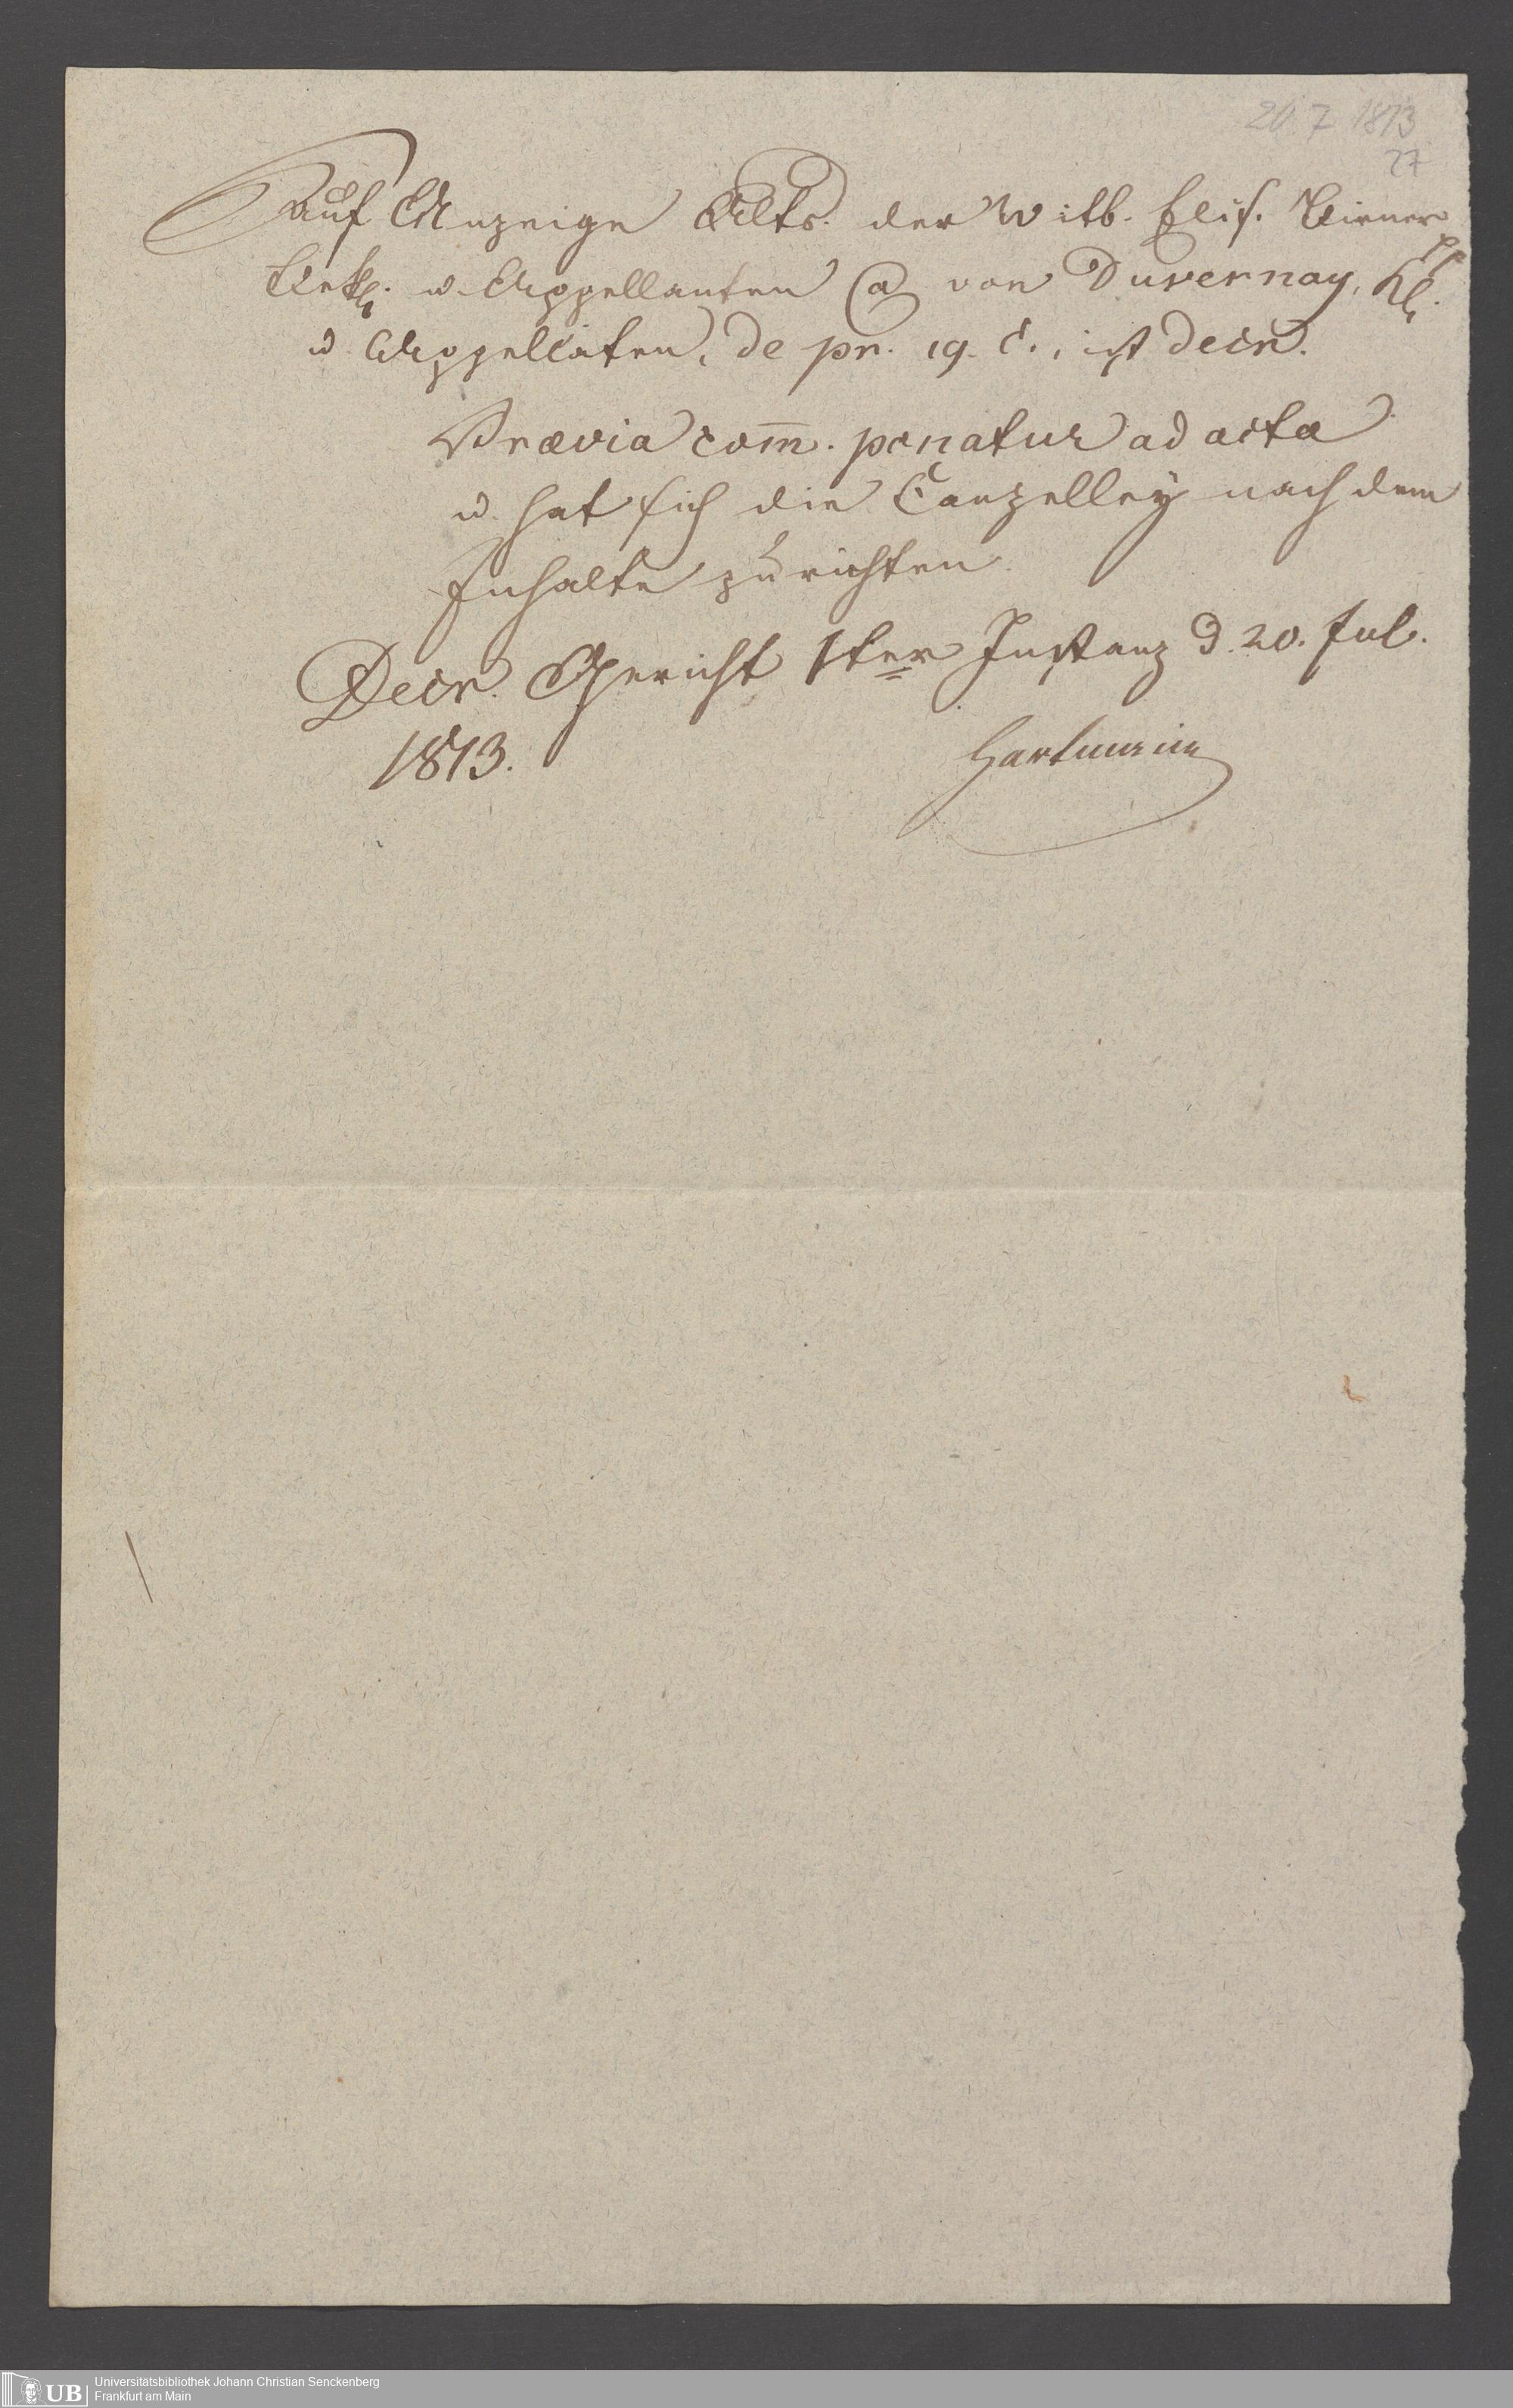 20. 7 1813
27
Auf Anzeige Alts. der Witb. Elis. Birner
Bekl. u. Appellanten Ca von Duvernay, Kl.
u. Appellaten, de pr. 19. c., ist decr.
Praevia com̅. ponatur ad acta
u. hat sich die Canzelley nach dem
Inhalte zu richten.
Decr. Gericht 1ter Instanz d. 20. Jul.
1813.
Hartmann
UB
Universitätsbibliothek Johann Christian Senckenberg
Frankfurt am Main